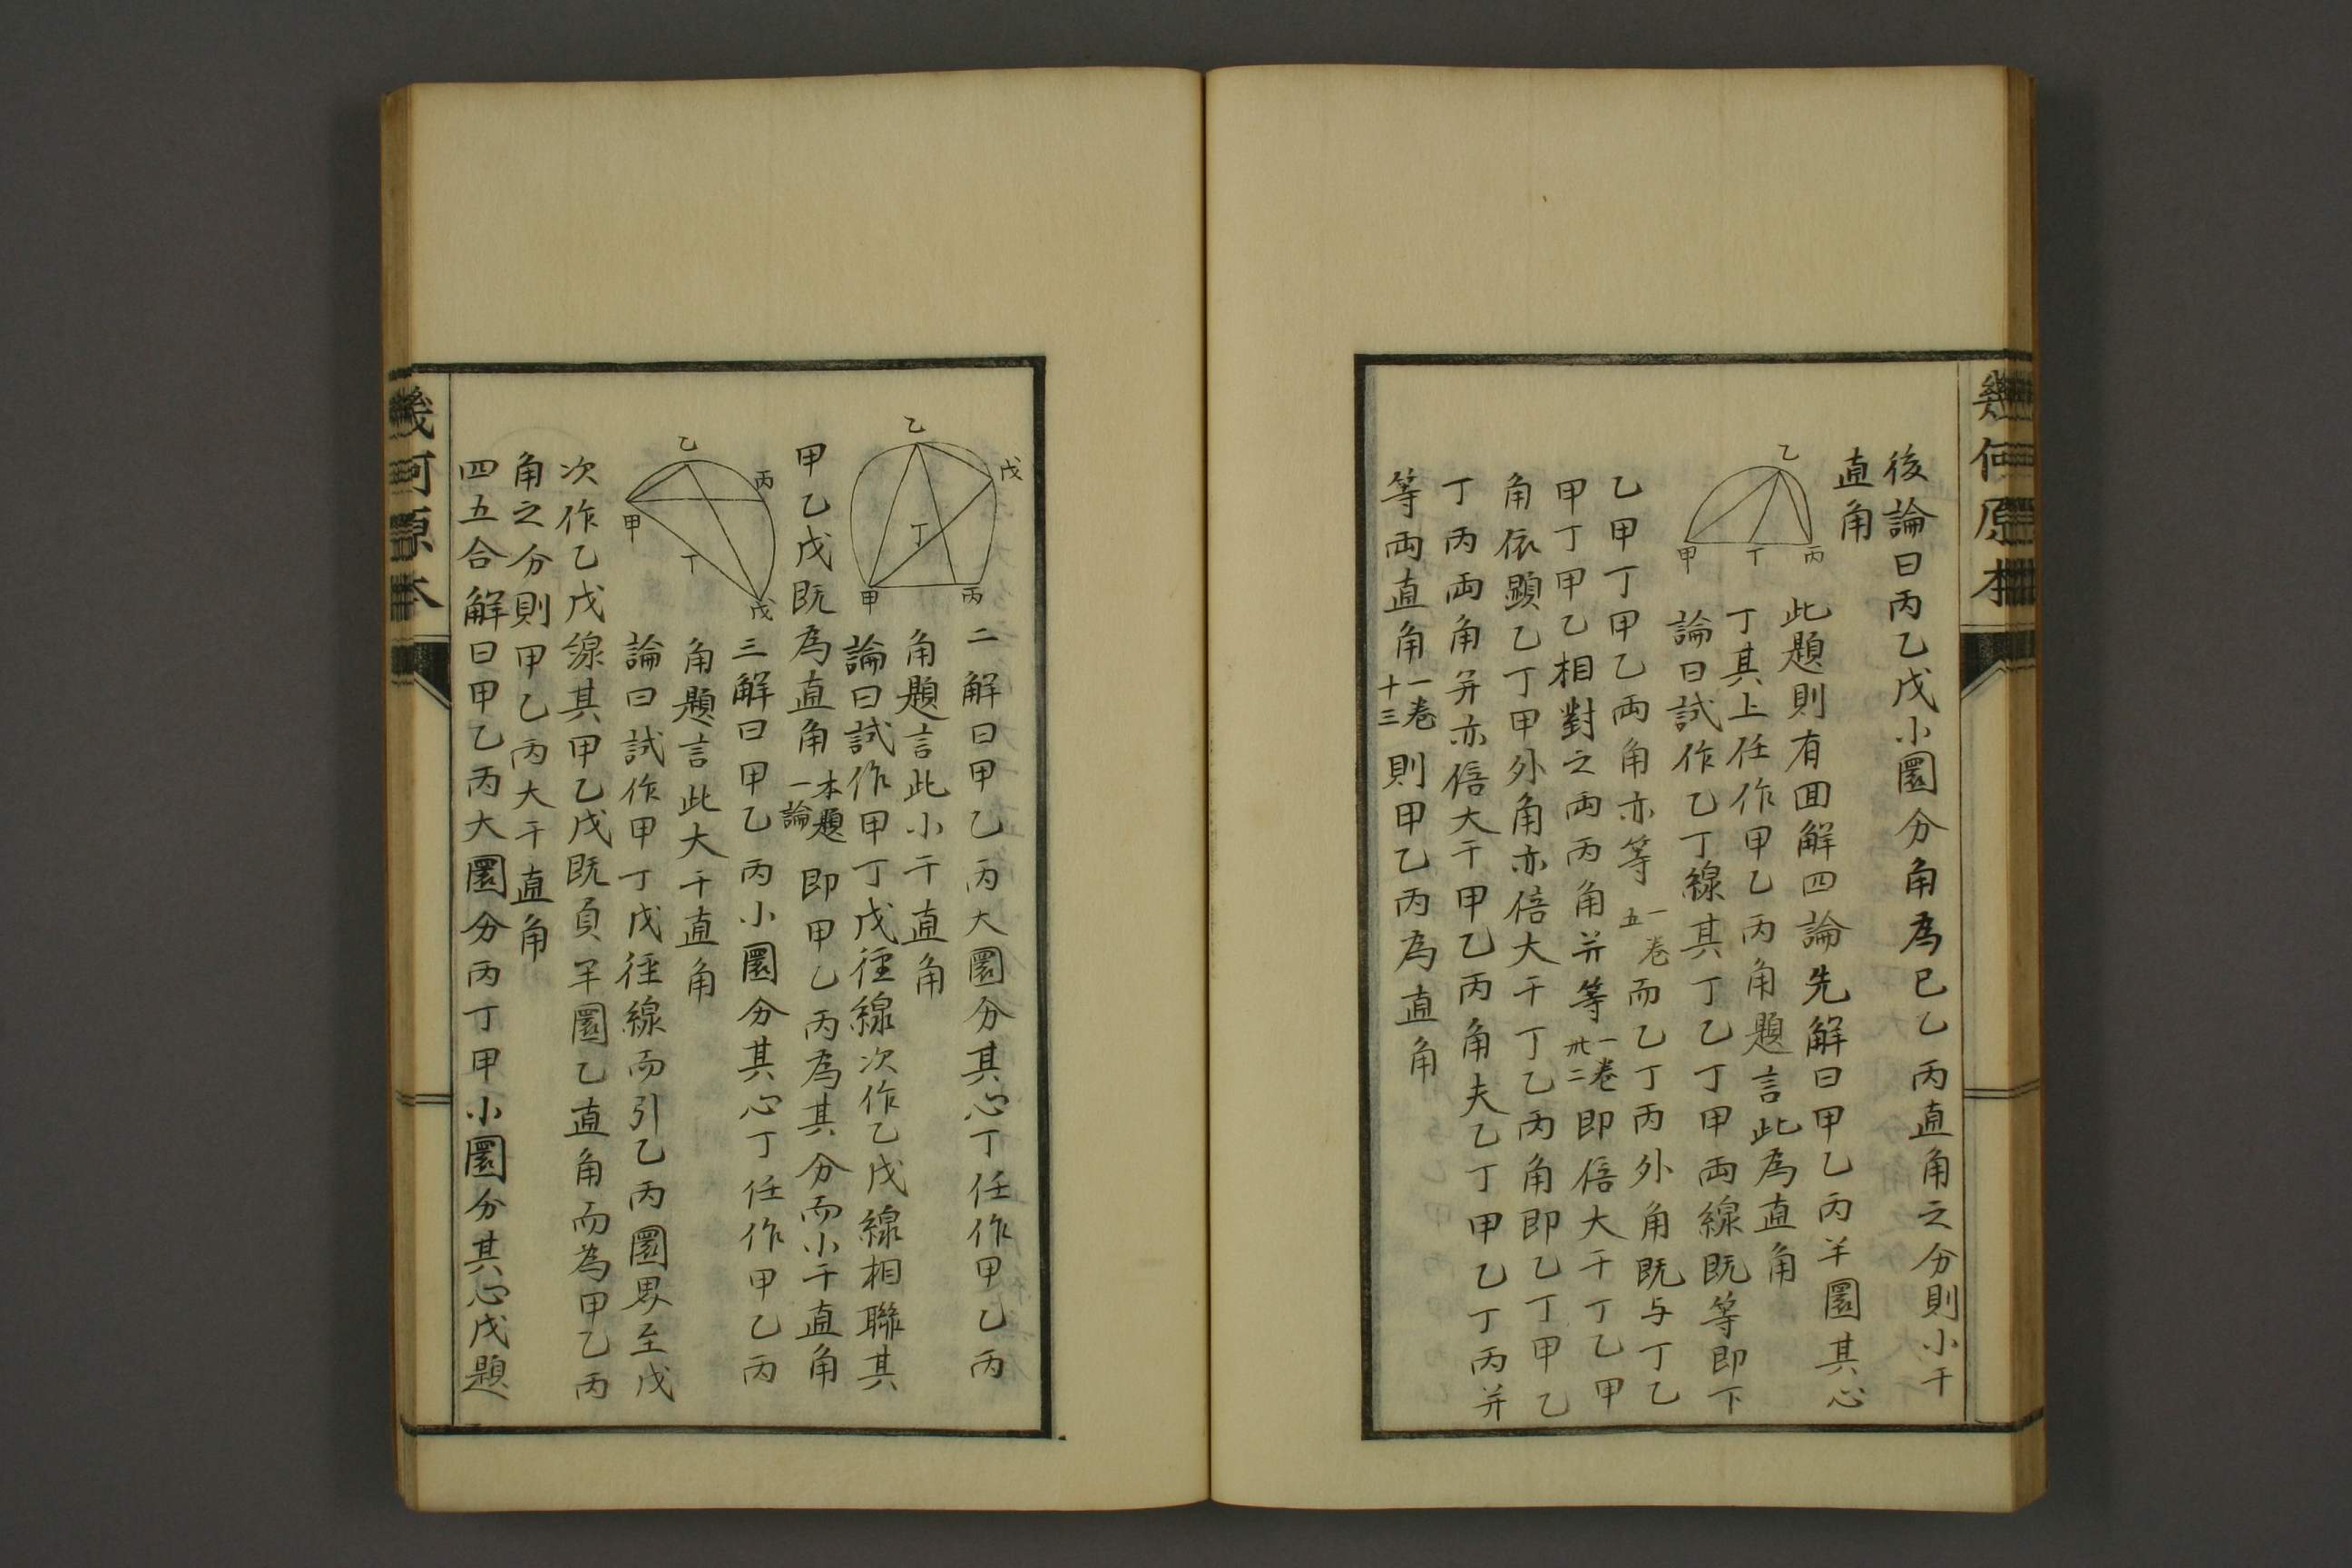 幾何原本
後論曰丙乙戊小圜分角為已乙丙直角之分則小于
直角
乙
甲
丁
丙
此題則有囬解四論先解曰甲乙丙半圜其心
丁其上任作甲乙丙角題言此為直角
論曰試作乙丁線其丁乙丁甲両線既等即下
乙甲丁甲乙両角亦等
一卷
五
而乙丁丙外角既与丁乙
甲丁甲乙相對之両丙角并等
一卷
卅二
即倍大于丁乙甲
角依顯乙丁甲外角亦倍大于丁乙丙角即乙丁甲乙
丁丙両角并亦倍大于甲乙丙角夫乙丁甲乙丁丙并
等両直角
一卷
十三
則甲乙丙為直角
二解曰甲乙丙大圜分其心丁任作甲乙丙
角題言此小于直角
乙
戊
丁
甲
丙
論曰試作甲丁戊徑線次作乙戊線相聯其
甲乙戊既為直角
本題
一論
即甲乙丙為其分而小于直角
三解曰甲乙丙小圜分其心丁任作甲乙丙
角題言此大于直角
乙
丙
甲
丁
戊
論曰試作甲丁戊徑線而引乙丙圜界至戊
次作乙戊線其甲乙戊既負半圜乙直角而為甲乙丙
角之分則甲乙丙大于直角
四五合解曰甲乙丙大圜分丙丁甲小圜分其心戊題
幾何原本